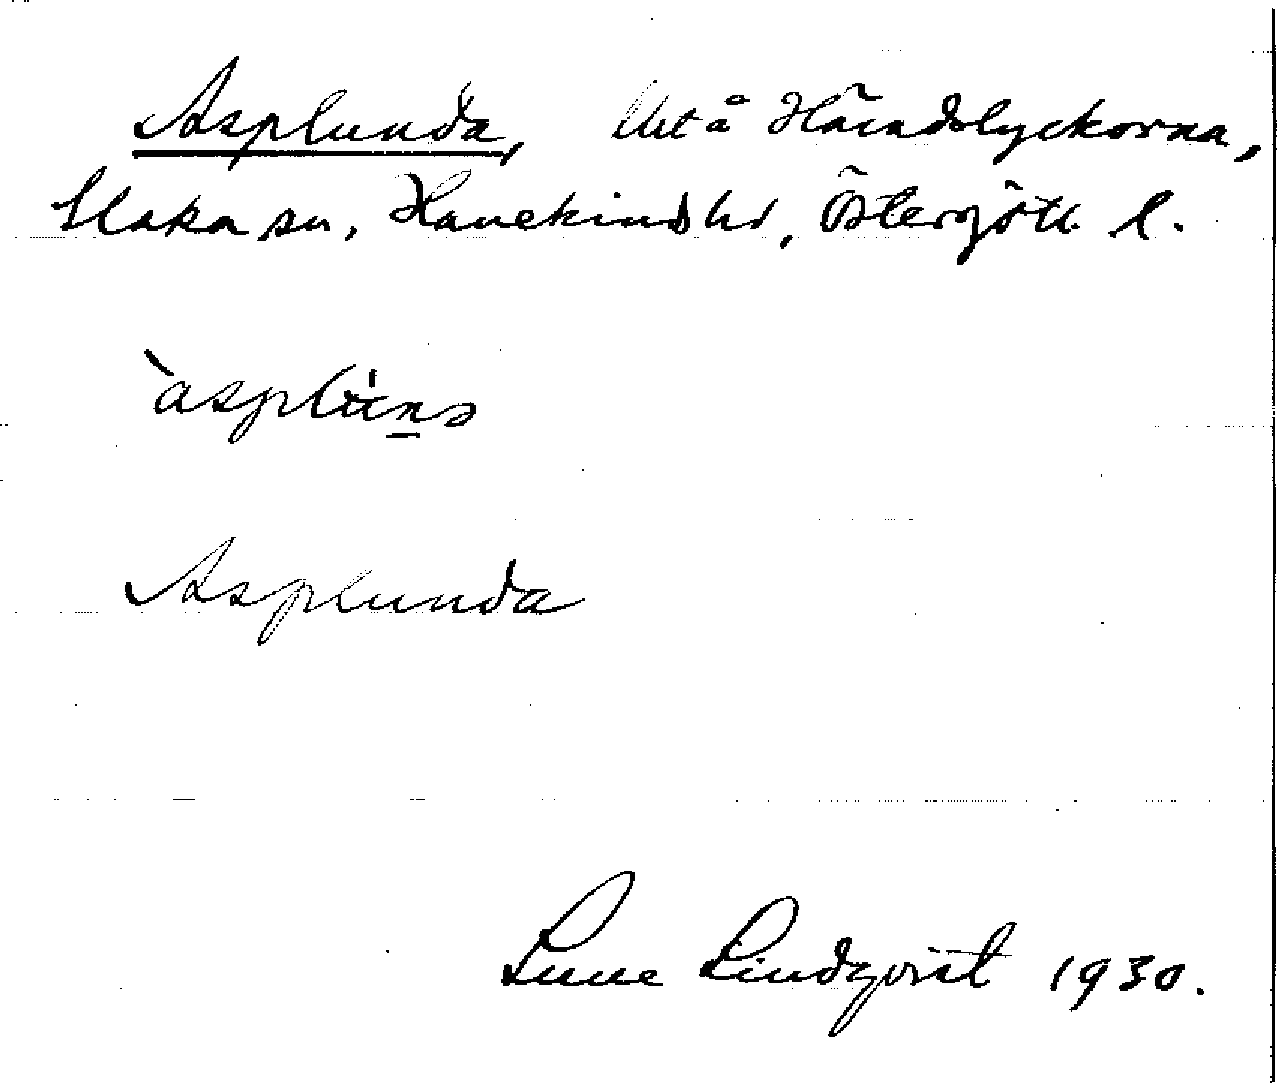 Asplunda, lht å Häradslyckorna,
Slaka sn, Hanekinds hd, Östergötl. l.
àsplu̍ns
Asplunda
Sune Lindqvist 1930.